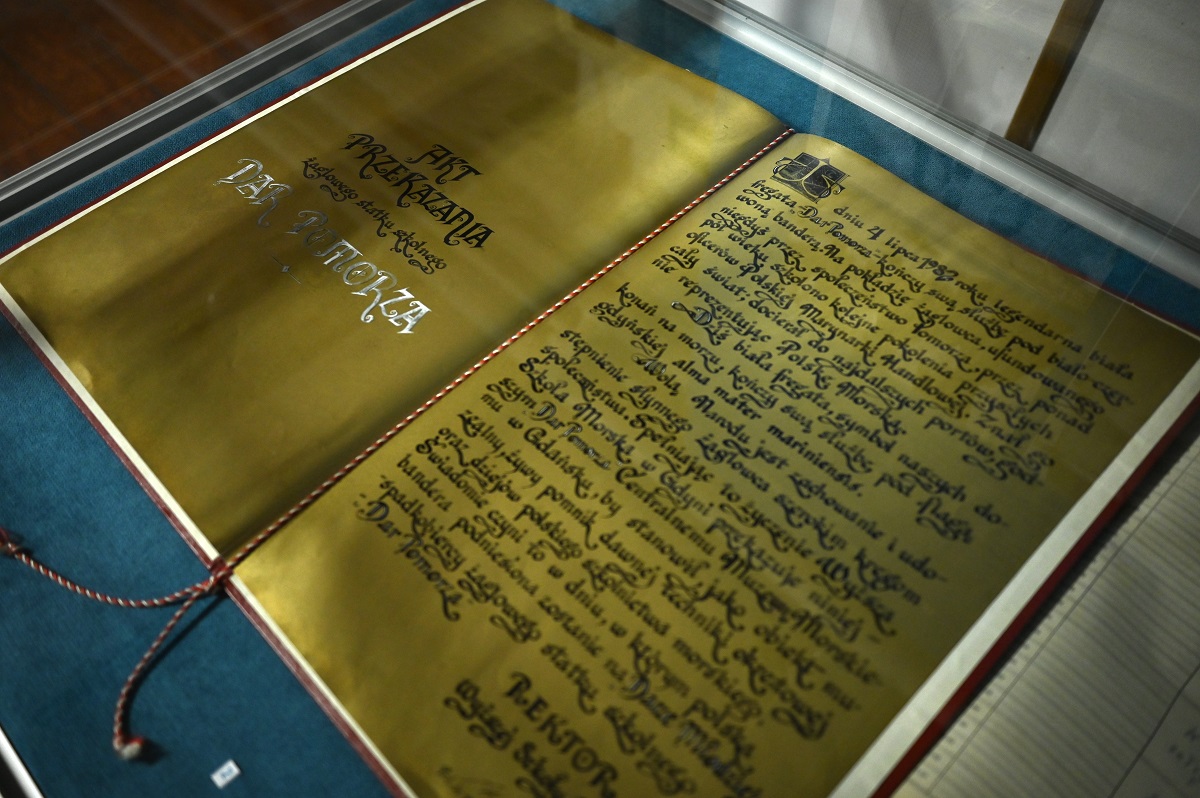 AKT
PRZEKAZANIA
żaglowego statku szkolnego
DAR POMORZA
dniu 4 lipca 1982 roku legendarna biała
fregata „Dar Pomorza” kończy swą służbę pod biało-czer-
woną banderą. Na pokładzie żaglowca, ufundowanego
niegdyś przez społeczeństwo Pomorza, przez ponad
pół wieku szkolono kolejne pokolenia przyszłych
oficerów Polskiej Marynarki Handlowej. Znał
cały świat, docierał do najdalszych portów, god-
nie reprezentując Polskę Morską.
Dziś biała fregata, symbol naszych do-
konań na morzu, kończy swą służbę pod flagą
gdyńskiej alma mater
Wolą Narodu jest zachowanie i udo-
stępnienie słynnego żaglowca szerokim kręgom
społeczeństwa. Spełniając to życzenie Wyższa
Szkoła Morska w Gdyni przekazuje niniej-
szym „Dar Pomorza” Centralnemu Muzeum Morskie-
mu w Gdańsku, by stanowił jako obiekt mu-
zealny żywy pomnik dawnej techniki okrętowej
oraz dziejów polskiego szkolnictwa morskiego.
Świadomie czyni to w dniu, w którym polska
bandera podniesiona zostanie na „Darze
spadkobiercy żaglowego statku szkolnego
„Dar Pomorza”.
REKTOR
Wyższej Szkoły